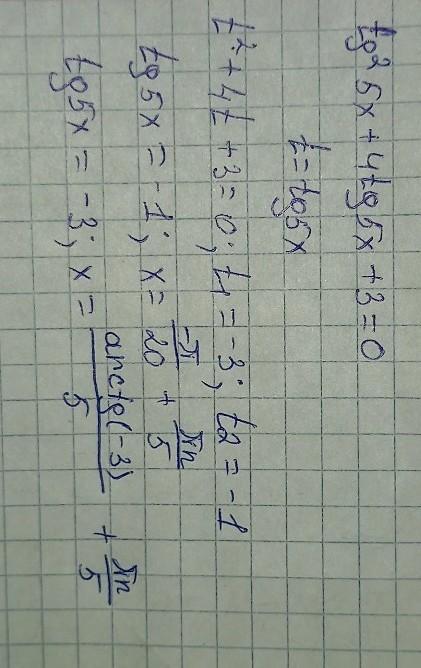 tg² 5x + 4tg5x + 3 = 0
t = tg5x
t² + 4t + 3 = 0; t₁ = -3; t2 = -1
tg5x = -1; x = -π/20 + πn/5
tg5x = -3; x = arctg(-3)/5 + πn/5